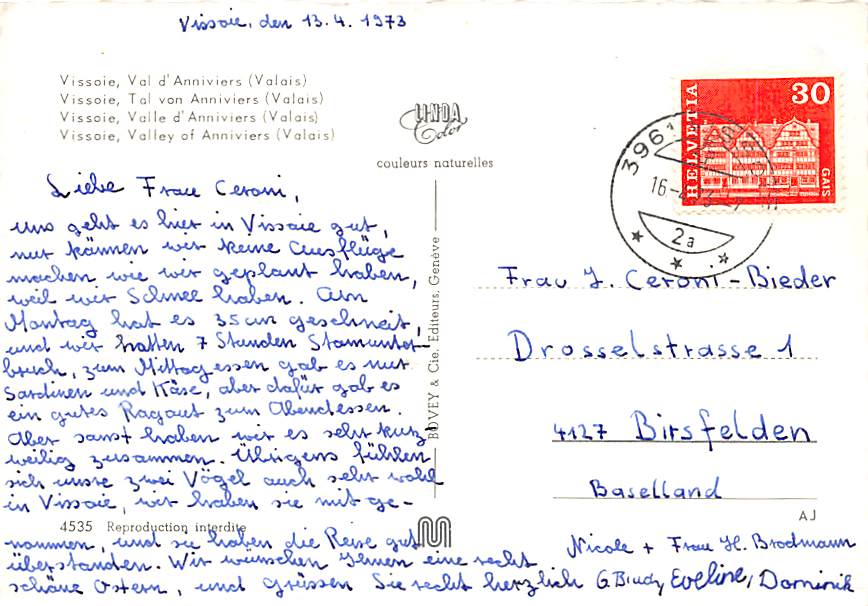 Vissoie, den 13.4.1973
Vissoie, Val d'Anniviers (Valais)
Vissoie, Tal von Anniviers (Valais)
Vissoie, Valle d'Anniviers (Valais)
Vissoie, Valley of Anniviers (Valais)
LINDA
Color
couleurs naturelles
HELVETIA
30
GAIS
3961
16-4
2a
Liebe Frau Ceroni,
uns geht es hier in Vissoie gut,
nur können wir keine Ausflüge
machen wie wir geplant haben,
weil wir Schnee haben. Am
Montag hat es 35cm geschneit,
und wir hatten 7 Stunden Stromunter-
bruch, zum Mittagessen gab es nur
Sardinen und Käse, aber dafür gab es
ein gutes Ragout zum Abendessen.
Aber sonst haben wir es sehr kurz
weilig zusammen. Übrigens fühlen
sich unsre zwei Vögel auch sehr wohl
in Vissoie, wir haben sie mit ge-
nommen, und sie haben die Reise gut
überstanden. Wir wünschen Ihnen eine recht
schöne Ostern, und grüssen Sie recht herzlich
Nicole + Frau H. Brodmann
Eveline, Dominik
BOVEY & Cie, Editeurs, Genève
Frau J. Ceroni-Bieder
Drosselstrasse 1
4127 Birsfelden
Baselland
4535 Reproduction interdite
AJ